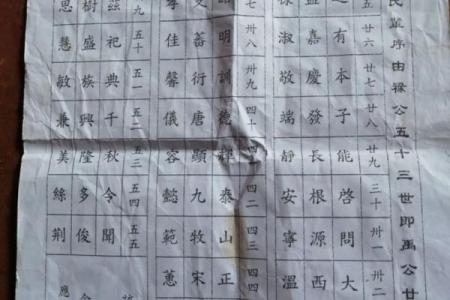 序由祿公五十三世即禹公廿
五 廿六 廿七 廿八 廿九 三十 卅一 卅二
之有本子能啓問大
嘉慶發長根源西
淑敬端靜安寧溫
卅八 卅九 四十 四一 四二 四三 四四
明訓德輝泰山正
蕃衍唐顯九牧宋
佳馨儀容懿範蕙
九 五十 五一 五二 五三 五四 五五
茲祀典千秋令聞
樹盛族興隆多俊
思慧敏兼美絲荊
應